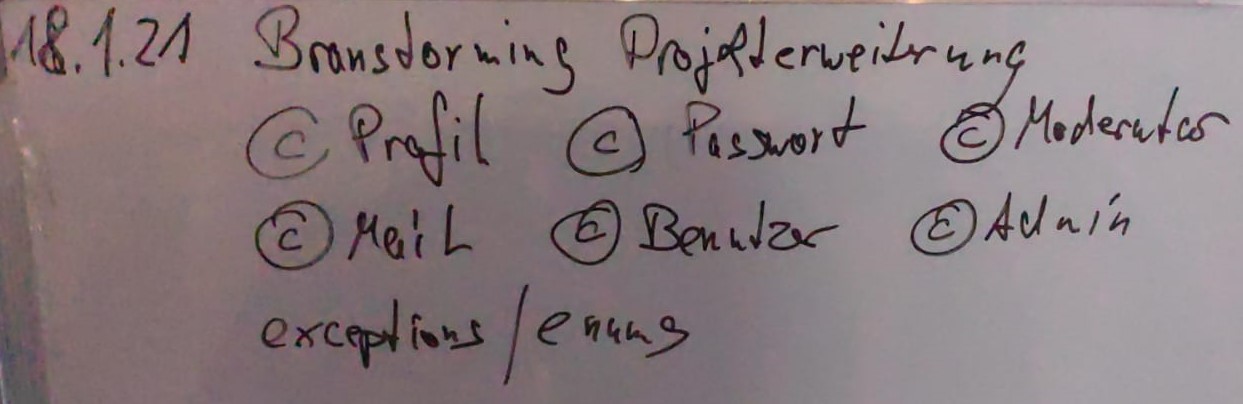 18.1.21 Bransdorming Projekterweiterung
© Profil © Passwort © Moderator
© Mail © Benutzer © Admin
exceptions / enums